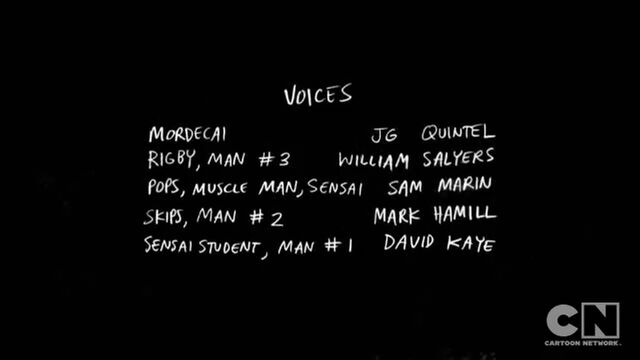 VOICES
MORDECAI JG QUINTEL
RIGBY, MAN #3 WILLIAM SALYERS
POPS, MUSCLE MAN, SENSAI SAM MARIN
SKIPS, MAN #2 MARK HAMILL
SENSAI STUDENT, MAN #1 DAVID KAYE
CN
CARTOON NETWORK.